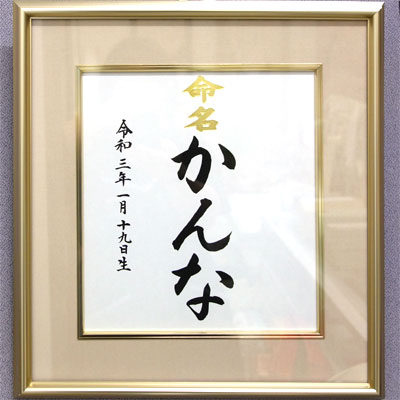 命名
かんな
令和三年一月十九日生